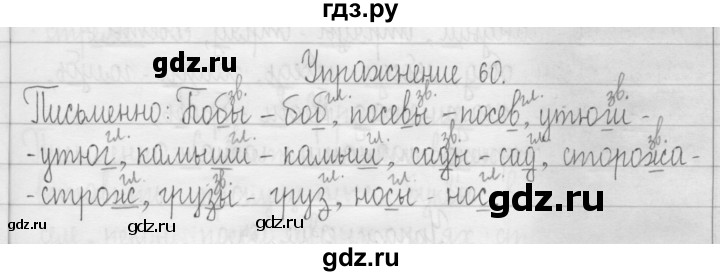 гдз.ру
gdz.ru gdz.ru
Упражнение 60.
зв. гл. зв. гл. зв.
Письменно: Бобы - боб, посевы - посев, утюги -
гл. гл. гл. зв. гл. зв.
- утюг, камыши - камыш, сады - сад, сторожа -
гл. зв. гл. гл. гл.
- строж, грузы - груз, носы - нос
gdz.ru gdz.ru gdz.ru